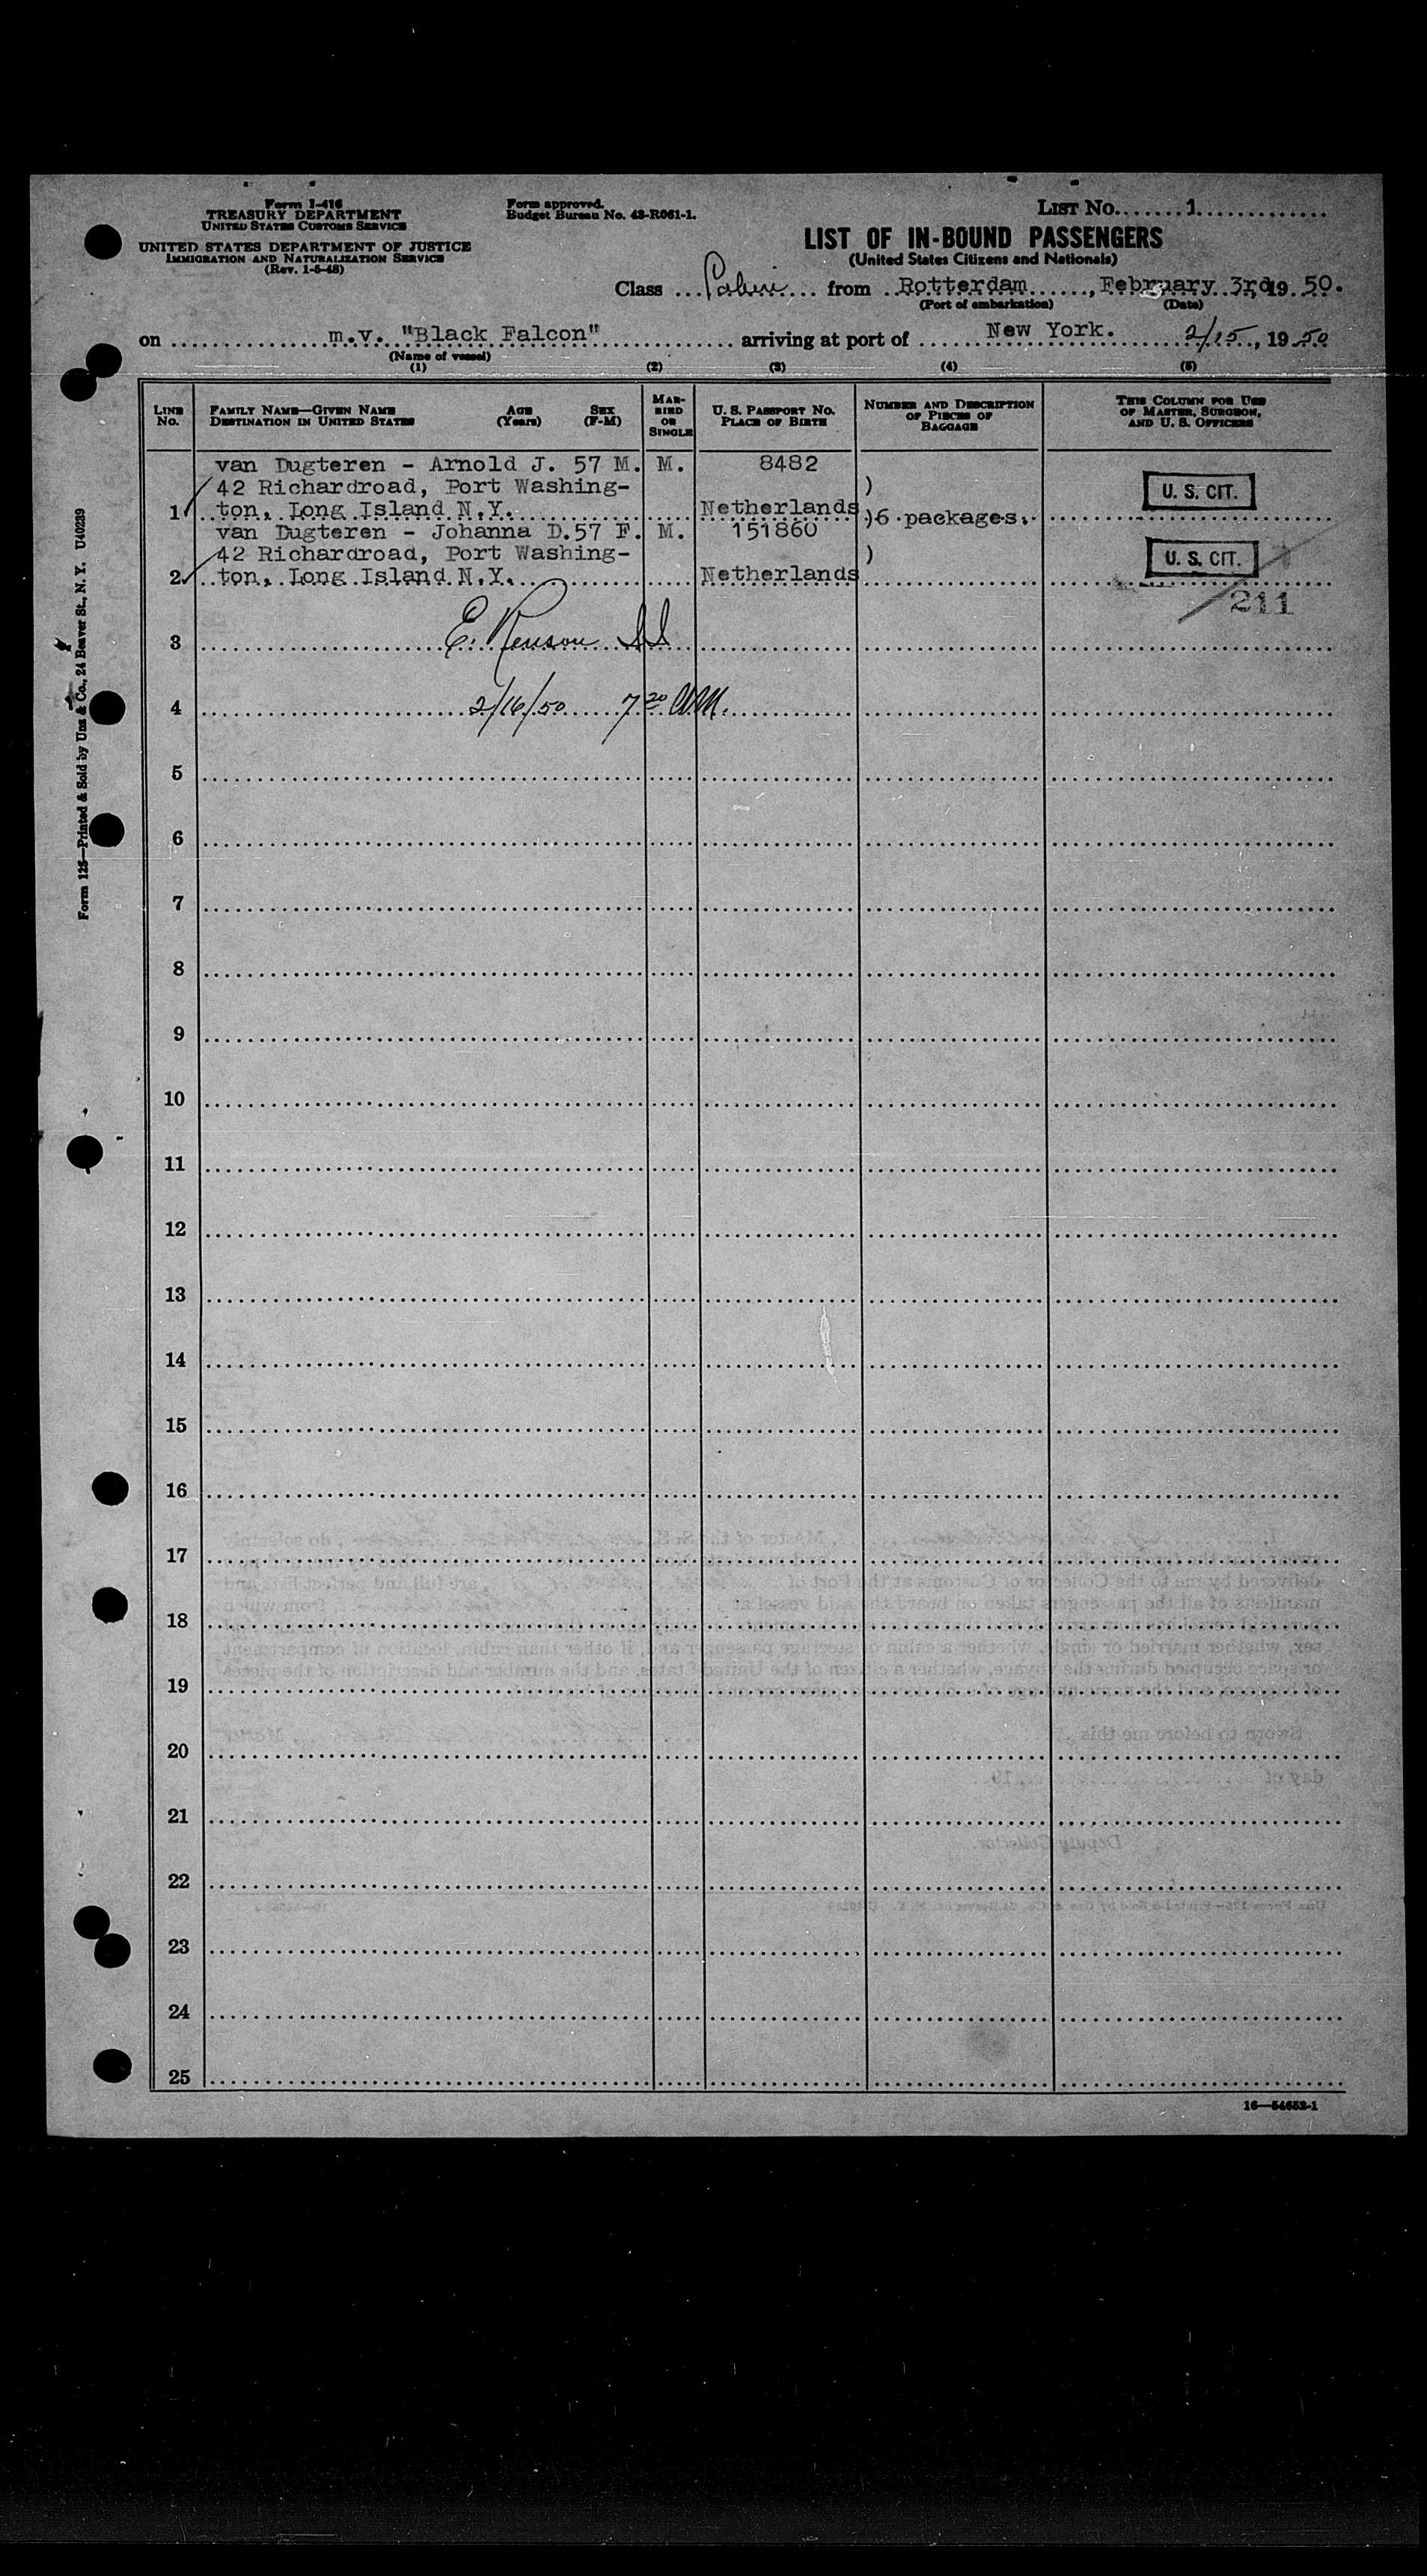 Form I-416
TREASURY DEPARTMENT
UNITED STATES CUSTOMS SERVICE
UNITED STATES DEPARTMENT OF JUSTICE
IMMIGRATION AND NATURALIZATION SERVICE
(Rev. 1-5-48)
Form approved.
Budget Bureau No. 43-R061-1.
LIST No. 1
LIST OF IN-BOUND PASSENGERS
(United States Citizens and Nationals)
Class from Rotterdam, February 3rd, 19 50.
(Port of embarkation) (Date)
on m.v. "Black Falcon" arriving at port of New York. 2/15, 19 50
(Name of vessel)
(1) (2) (3) (4) (5)
LINE No.
FAMILY NAME—GIVEN NAME
DESTINATION IN UNITED STATES
AGE (Years)
SEX (F-M)
MARRIED OR SINGLE
U. S. PASSPORT NO.
PLACE OF BIRTH
NUMBER AND DESCRIPTION OF PIECES OF BAGGAGE
THIS COLUMN FOR USE OF MASTER, SURGEON, AND U. S. OFFICERS
van Dugteren - Arnold J. 57 M. M. 8482
42 Richardroad, Port Washing- ) U. S. CIT.
1 ton, Long Island N.Y. Netherlands )6 packages.
van Dugteren - Johanna D. 57 F. M. 151860
42 Richardroad, Port Washing- ) U. S. CIT.
2 ton, Long Island N.Y. Netherlands
211
3 E. Renson II
4 2/16/50 7 20 A.M.
5
6
7
8
9
10
11
12
13
14
15
16
17
18
19
20
21
22
23
24
25
16—54652-1
Form 125—Printed & Sold by Unz & Co., 24 Beaver St., N. Y. U40239